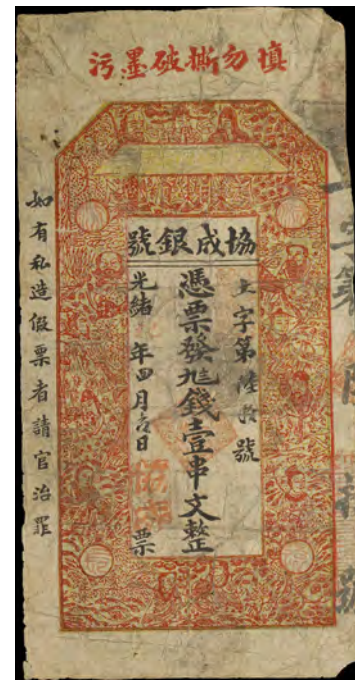 填勿撕破墨污
協成銀號
字第陸拾號
憑票發錢壹串文整
光緒 年四月吉日 票
如有私造假票者請官治罪
字第
號